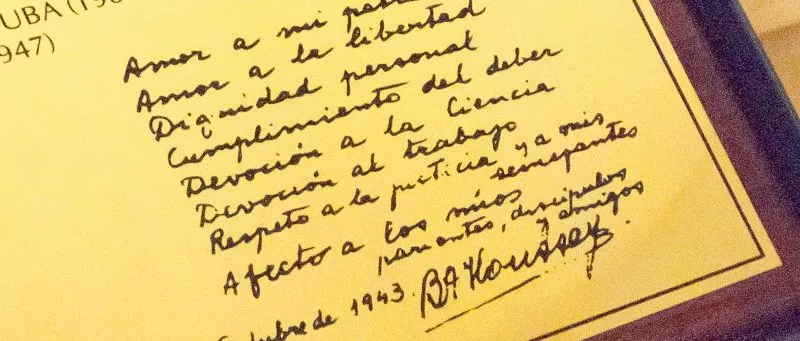 UBA (19
1947)
Amor a mi patria
Amor a la libertad
Dignidad personal
Cumplimiento del deber
Devoción a la Ciencia
Devoción al trabajo
Respeto a la justicia y a mis
semejantes
Afecto a los míos
parientes, discípulos
y amigos
Octubre de 1943. BAHoussay